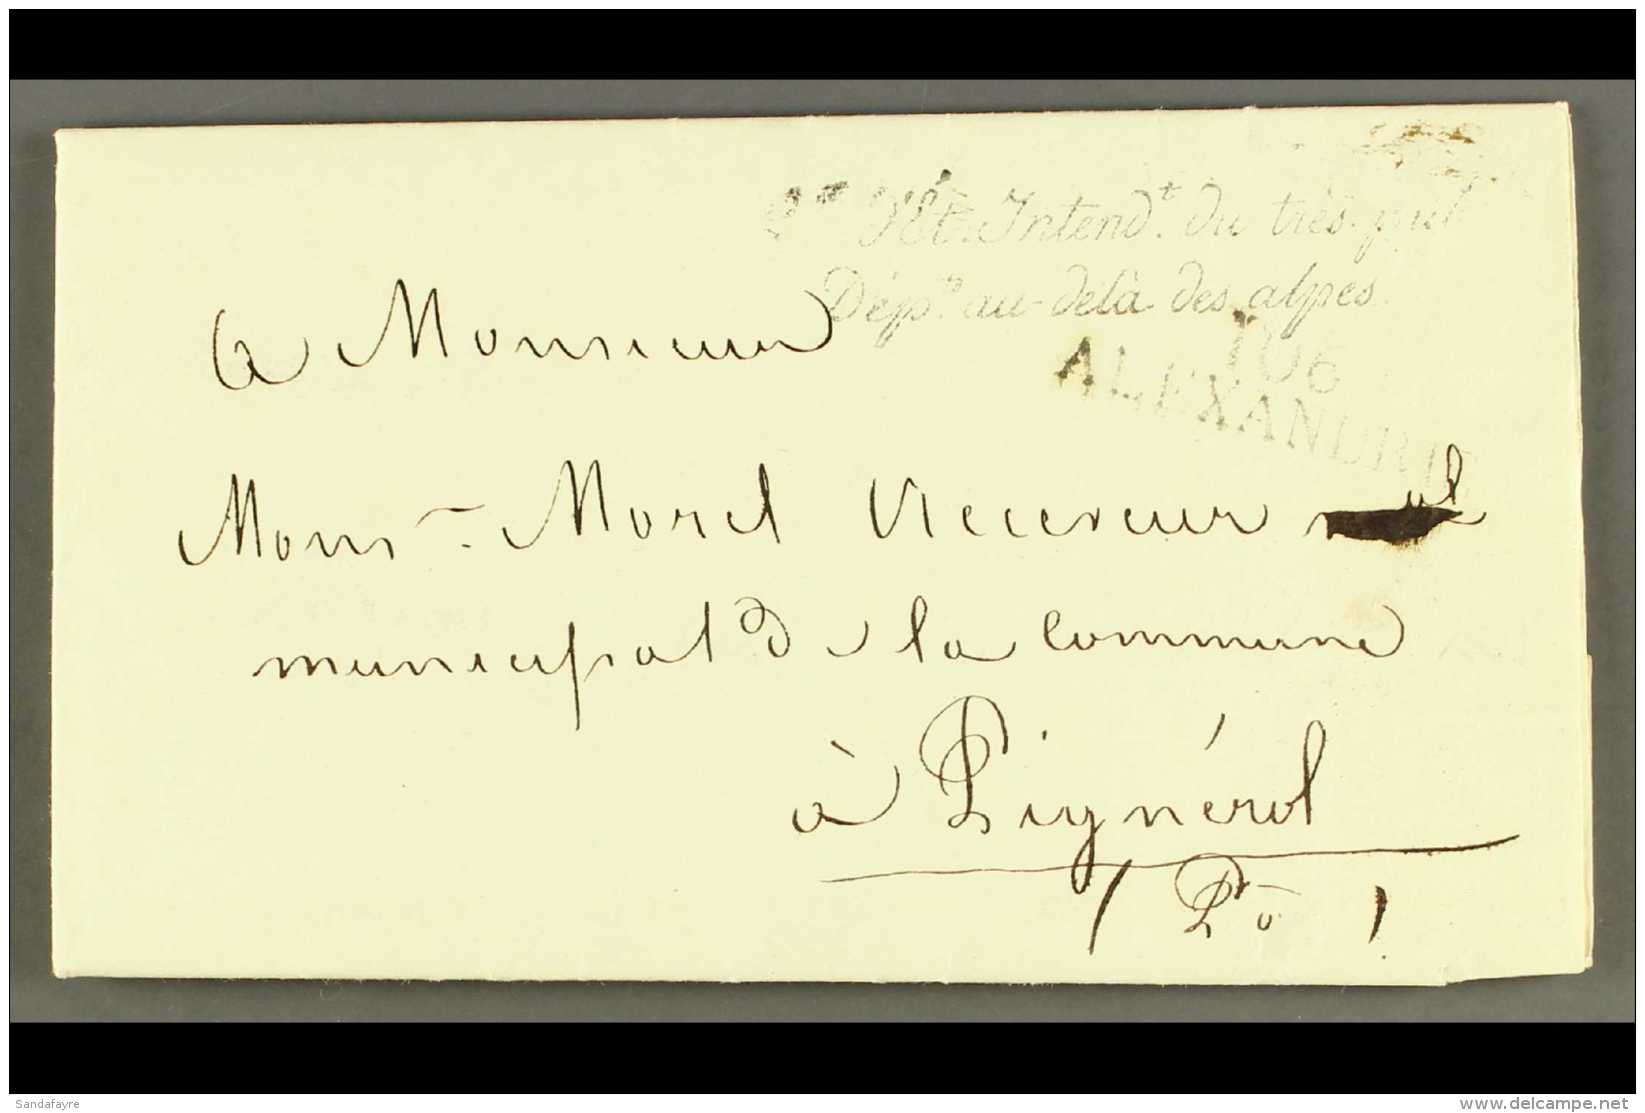 d'Et. Intend.t du très. pub
Dép.ts au-delà des alpes.
106
ALEXANDRIE
a Monsieur
Mons.r Morel Receveur
municipal de la commune
à Pignérol
Sandafayre
www.delcampe.net